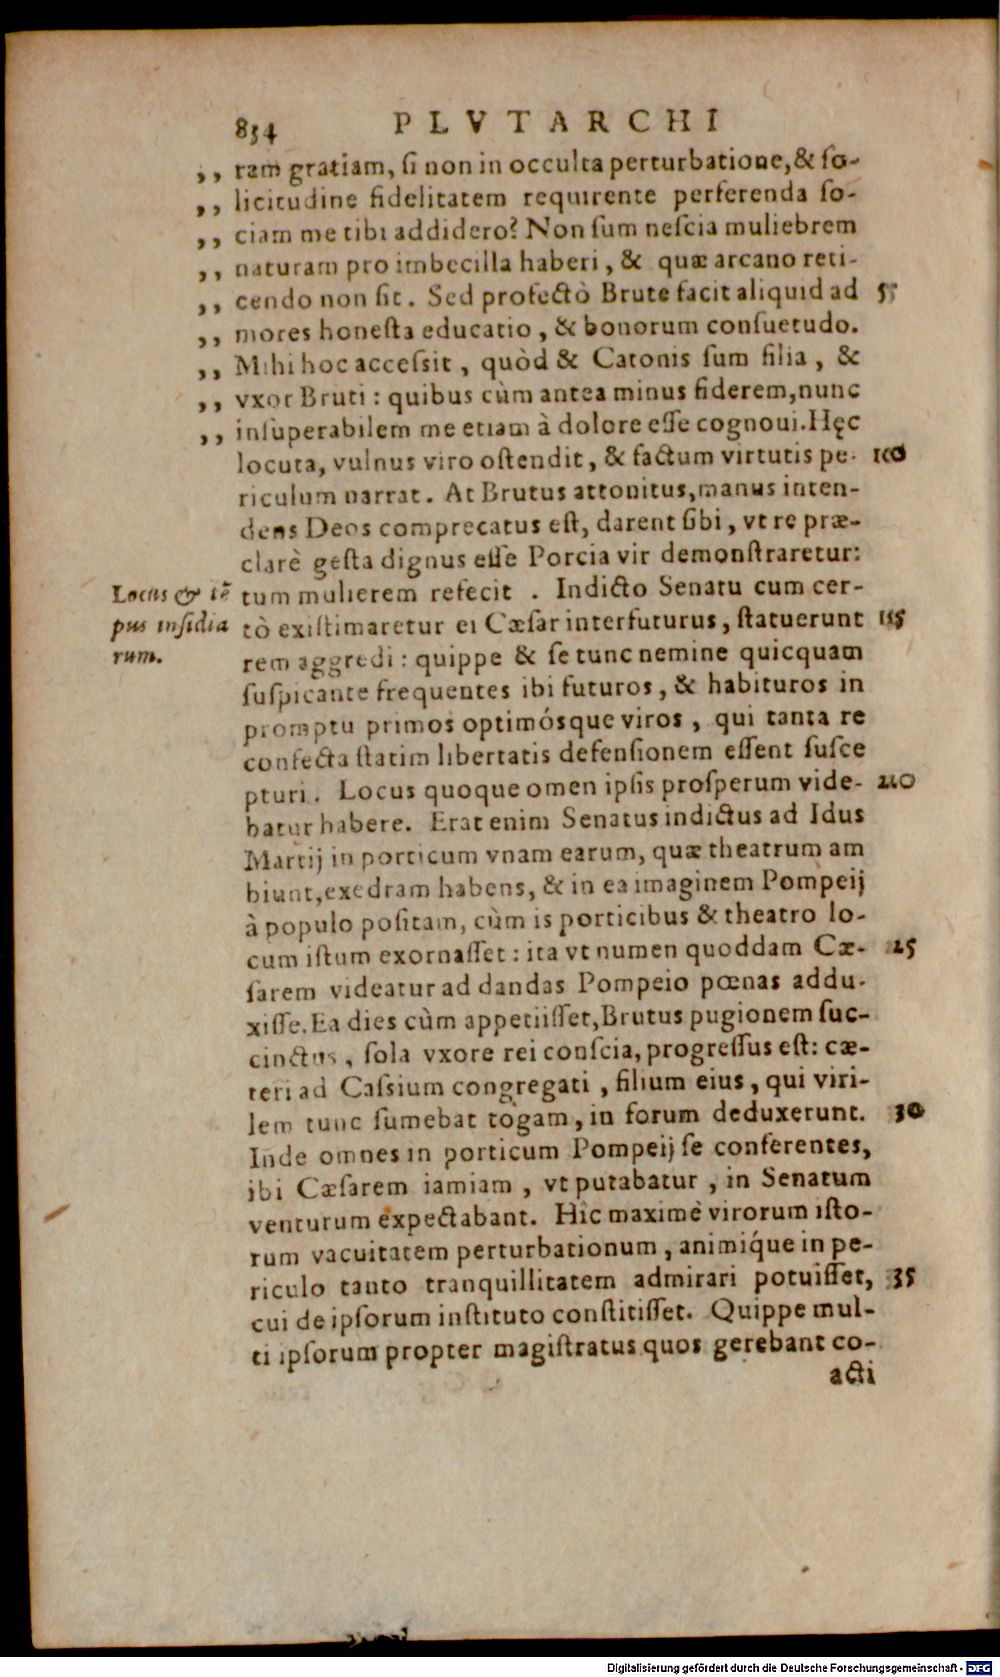 854 PLVTARCHI
,, ram gratiam, ſi non in occulta perturbatione, & ſo-
,, licitudine fidelitatem requirente perferenda ſo-
,, ciam me tibi addidero? Non ſum neſcia muliebrem
,, naturam pro imbecilla haberi, & quæ arcano reti-
,, cendo non ſit. Sed profectò Brute facit aliquid ad 5
,, mores honeſta educatio, & bonorum conſuetudo.
,, Mihi hoc acceſsit, quòd & Catonis ſum filia, &
,, vxor Bruti: quibus cùm antea minus fiderem, nunc
,, inſuperabilem me etiam à dolore eſſe cognoui. Hęc
locuta, vulnus viro oſtendit, & factum virtutis pe- 10
riculum narrat. At Brutus attonitus, manus inten-
dens Deos comprecatus eſt, darent ſibi, vt re præ-
clarè geſta dignus eſſe Porcia vir demonſtraretur:
Locus & tẽ tum mulierem refecit. Indicto Senatu cum cer-
pus inſidia tò exiſtimaretur ei Cæſar interfuturus, ſtatuerunt 15
rum. rem aggredi: quippe & ſe tunc nemine quicquam
ſuſpicante frequentes ibi futuros, & habituros in
promptu primos optimósque viros, qui tanta re
confecta ſtatim libertatis defenſionem eſſent ſuſce
pturi. Locus quoque omen ipſis proſperum vide- 20
batur habere. Erat enim Senatus indictus ad Idus
Martij in porticum vnam earum, quæ theatrum am
biunt, exedram habens, & in ea imaginem Pompeij
à populo poſitam, cùm is porticibus & theatro lo-
cum iſtum exornaſſet: ita vt numen quoddam Cæ- 25
ſarem videatur ad dandas Pompeio pœnas addu-
xiſſe. Ea dies cùm appetiiſſet, Brutus pugionem ſuc-
cinctus, ſola vxore rei conſcia, progreſſus eſt: cæ-
teri ad Caſsium congregati, filium eius, qui viri-
lem tunc ſumebat togam, in forum deduxerunt. 30
Inde omnes in porticum Pompeij ſe conferentes,
ibi Cæſarem iamiam, vt putabatur, in Senatum
venturum expectabant. Hîc maximè virorum iſto-
rum vacuitatem perturbationum, animíque in pe-
riculo tanto tranquillitatem admirari potuiſſet, 35
cui de ipſorum inſtituto conſtitiſſet. Quippe mul-
ti ipſorum propter magiſtratus quos gerebant co-
acti
Digitalisierung gefördert durch die Deutsche Forschungsgemeinschaft - DFG